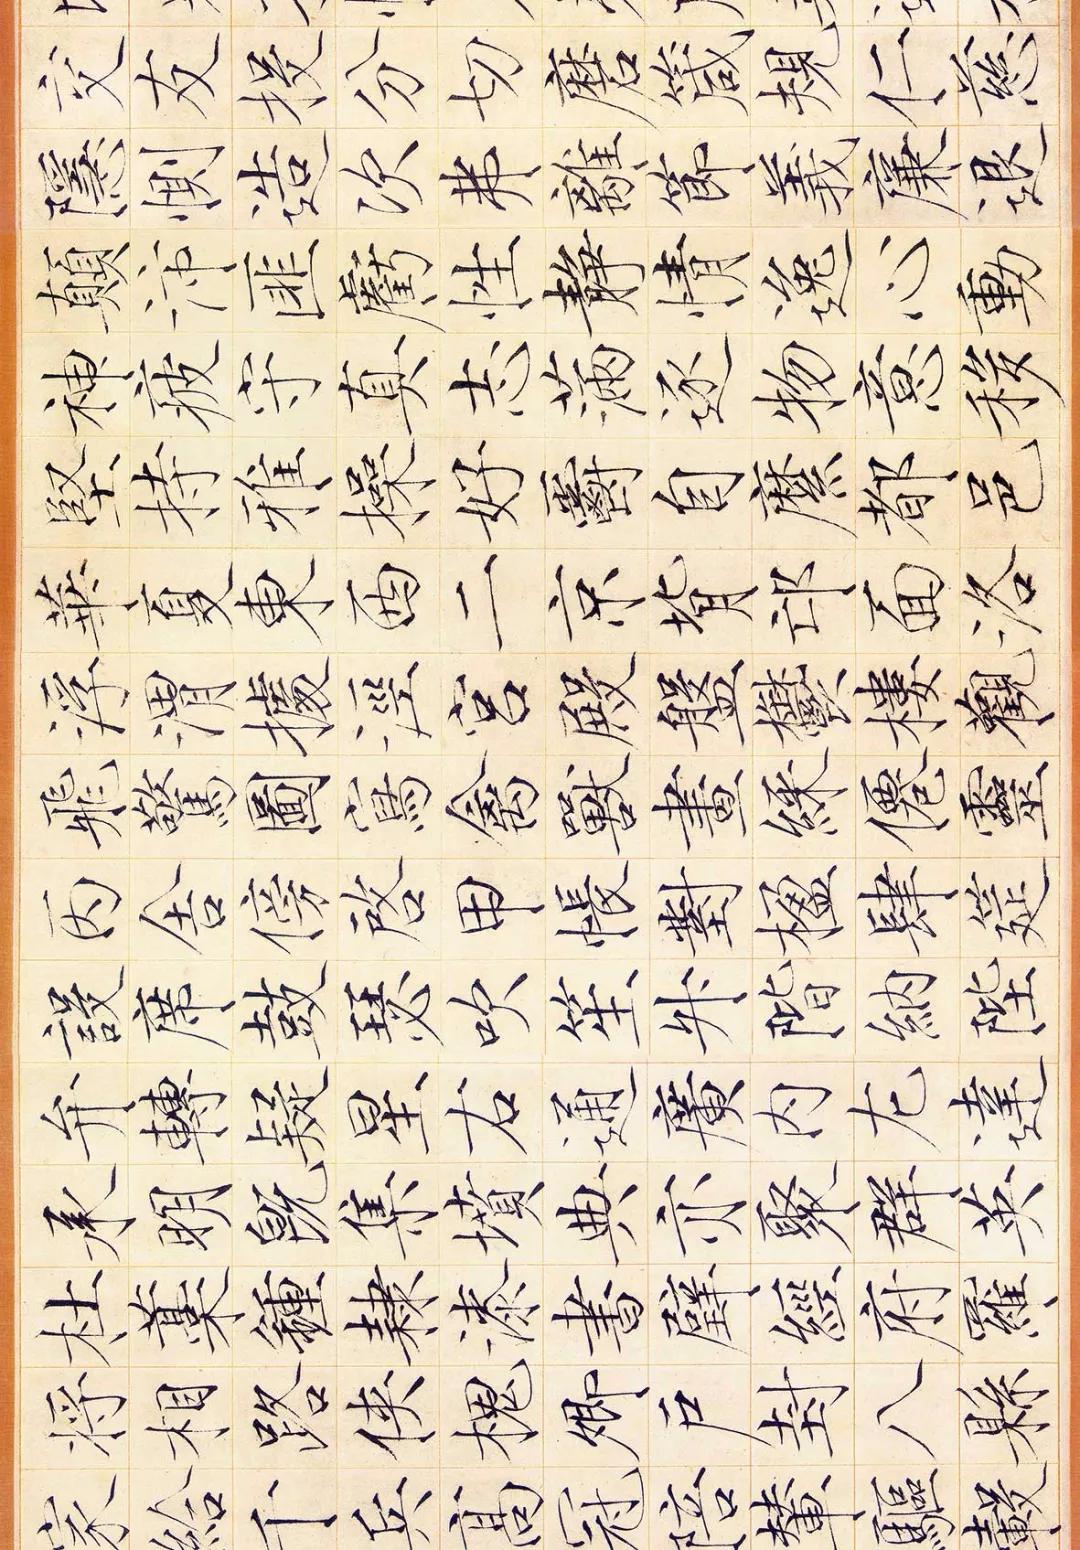 交友投分切磨箴規仁慈
隱惻造次弗離節義廉退
顛沛匪虧性靜情逸心動
神疲守真志滿逐物意移
堅持雅操好爵自縻都邑
華夏東西二京背邙面洛
浮渭據涇宮殿盤鬱樓觀
飛驚圖寫禽獸畫綵僊靈
丙舍傍啓甲帳對楹肆筵
設席鼓瑟吹笙升階納陛
弁轉疑星右通廣內左達
承明既集墳典亦聚群英
杜稾鍾隸漆書壁經府羅
將相路俠槐卿戶封八縣
家給千兵高冠陪輦驅轂